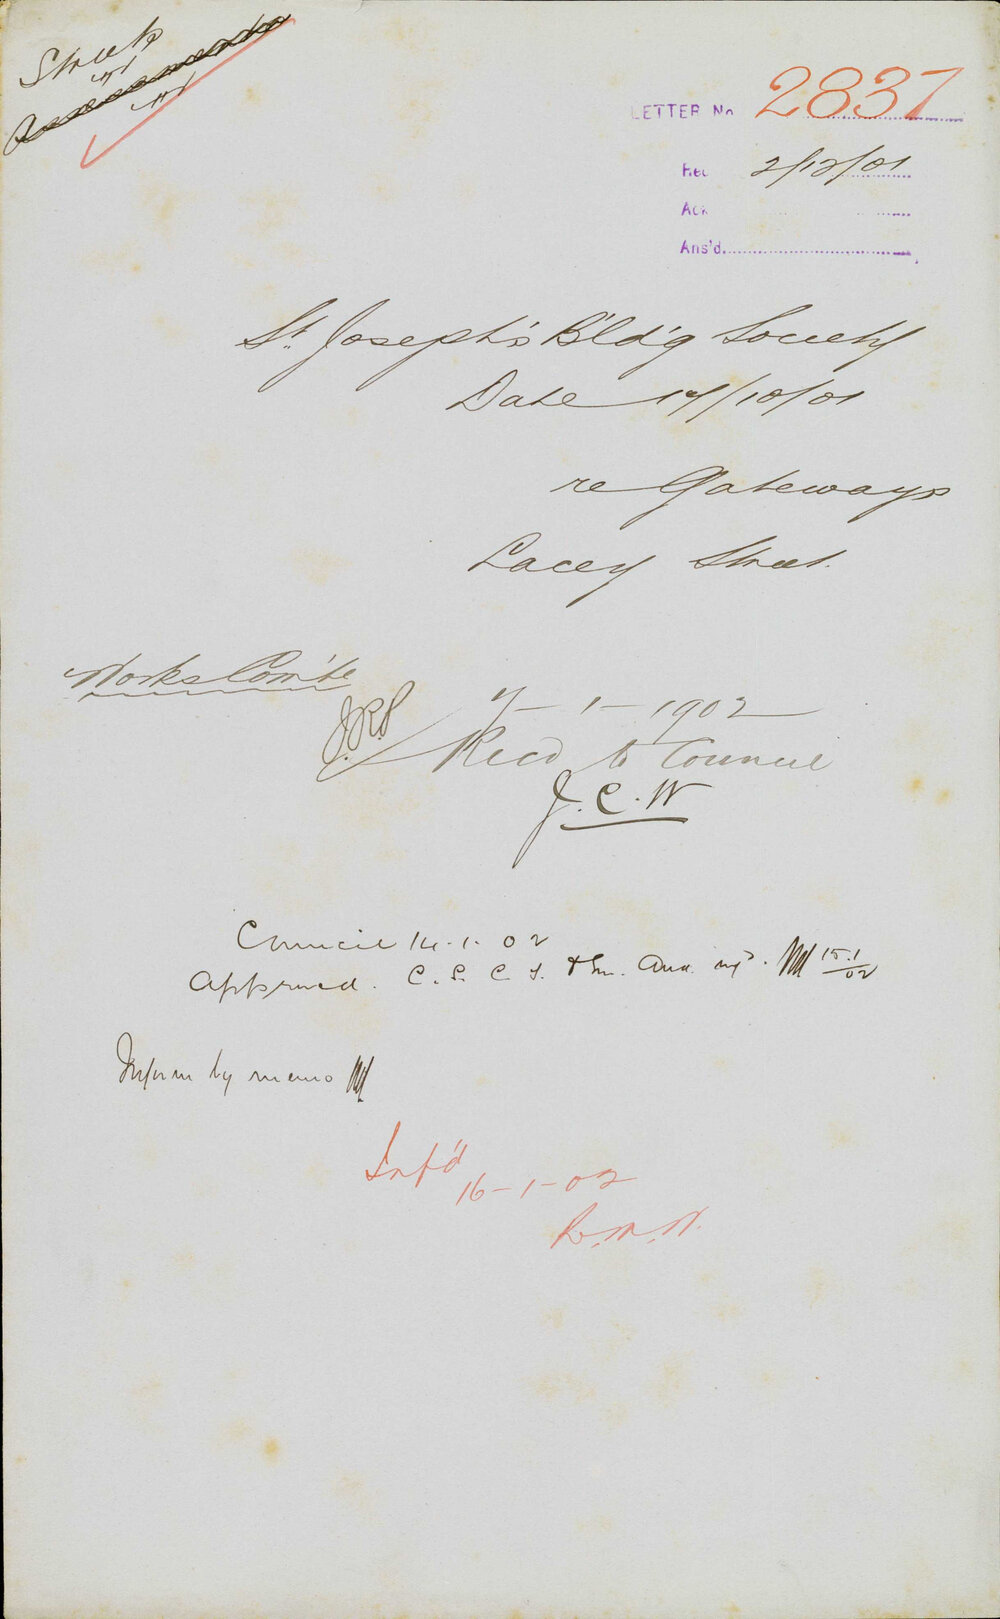 Streets
LETTER No 2837
Rec 2/12/01
Ack
Ans'd
St. Joseph's B'ld'g Society
Date 17/10/01
re Gateways
Lacey Street.
Works Com'te
7-1-1902
Recd to Council
J.C.W
Council 14-1-02
Approved. 15.1/02
Inform by memo
Inf'd
16-1-02